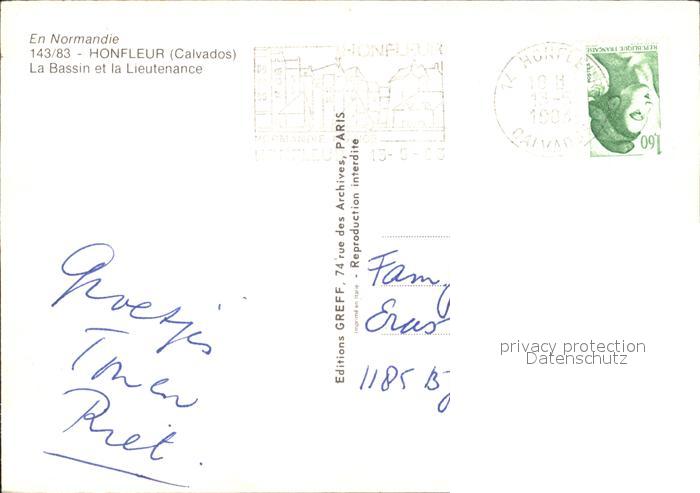 En Normandie
143/83 - HONFLEUR (Calvados)
La Bassin et la Lieutenance
HONFLEUR
14 HONFLEUR
CALVADOS
REPUBLIQUE FRANÇAISE
1,60
Editions GREFF, 74 rue des Archives, PARIS
- Reproduction interdite
Imprimé en Italie
Groetjes
Ton en
Riet.
Fam
Eras
1185 B
privacy protection
Datenschutz